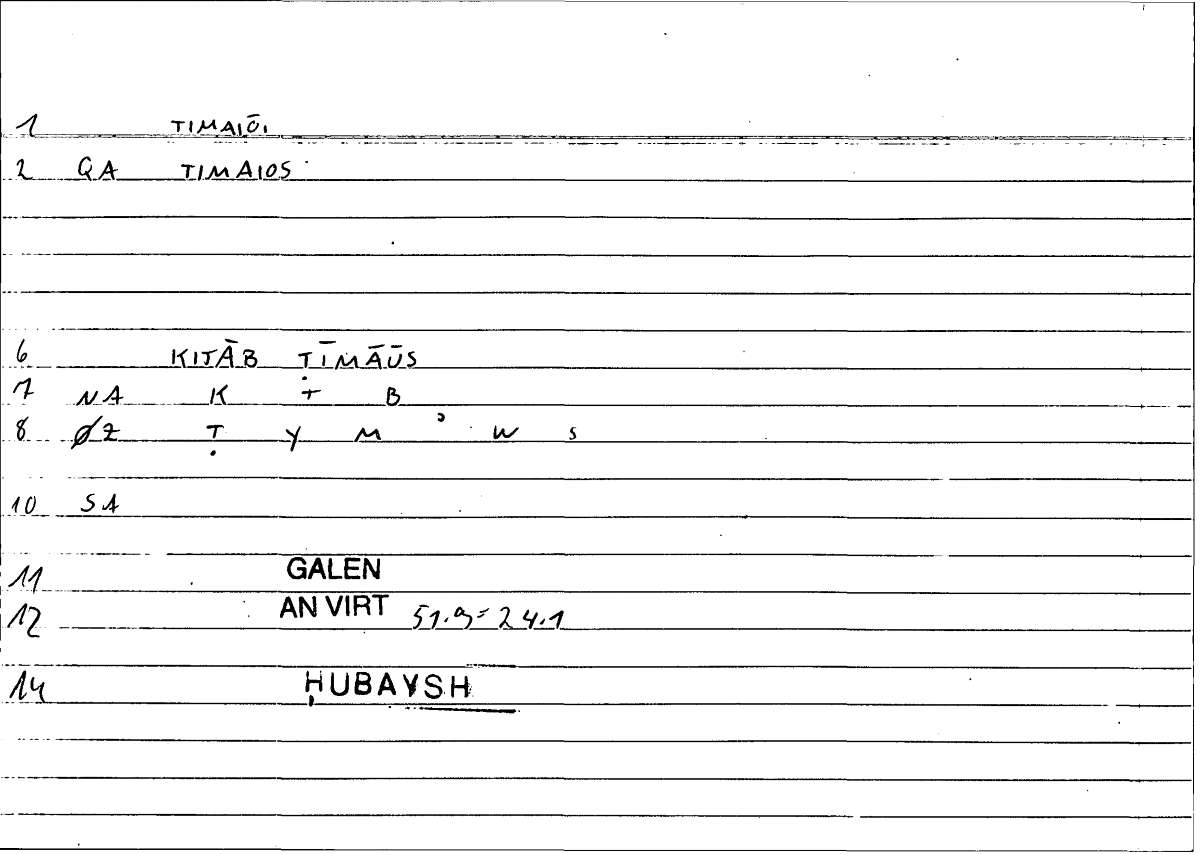 1 TIMAIŌI
2 QA TIMAIOS
6 KITĀB ṬĪMĀŪS
7 NA K T B
8 ØZ Ṭ Y M ʾ W S
10 SA
11 GALEN
12 AN VIRT 51.9=24.1
14 ḤUBAYSH